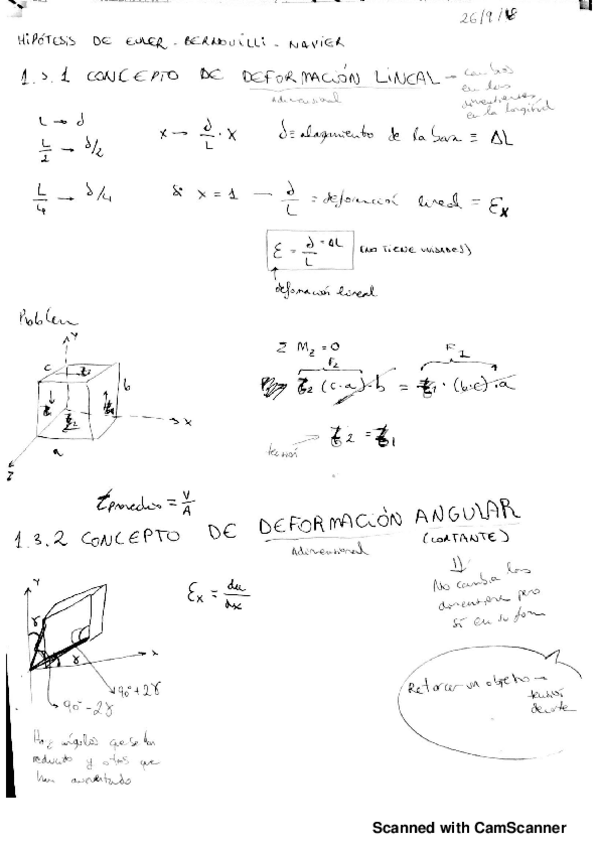 26/9/18
HIPÓTESIS DE EULER - BERNOUILLI - NAVIER
1.3.1 CONCEPTO DE DEFORMACIÓN LINEAL → cambios en las dimensiones en la longitud
Adimensional
L → δ
L/2 → δ/2
x → δ/L · x
δ ≡ alargamiento de la barra ≡ ΔL
L/4 → δ/4
Si x = 1 → δ/L = deformación lineal = εx
ε = δ/L = ΔL (NO TIENE UNIDADES)
deformación lineal
Problem
Y
c
b
a
x
z
Σ Mz = 0
F2
F1
τ2 (c·a)·b = τ1·(b·c)·a
τ2 = τ1
tensión
τpromedio = V/A
1.3.2 CONCEPTO DE DEFORMACIÓN ANGULAR
(CORTANTE)
Adimensional
No cambia las dimensiones pero
sí en su forma
εx = du/dx
Y
x
γ
γ
90° + 2γ
90° - 2γ
Hay ángulos que se han
reducido y otros que
han aumentado
Retorcer un objeto →
tensión
de corte
Scanned with CamScanner